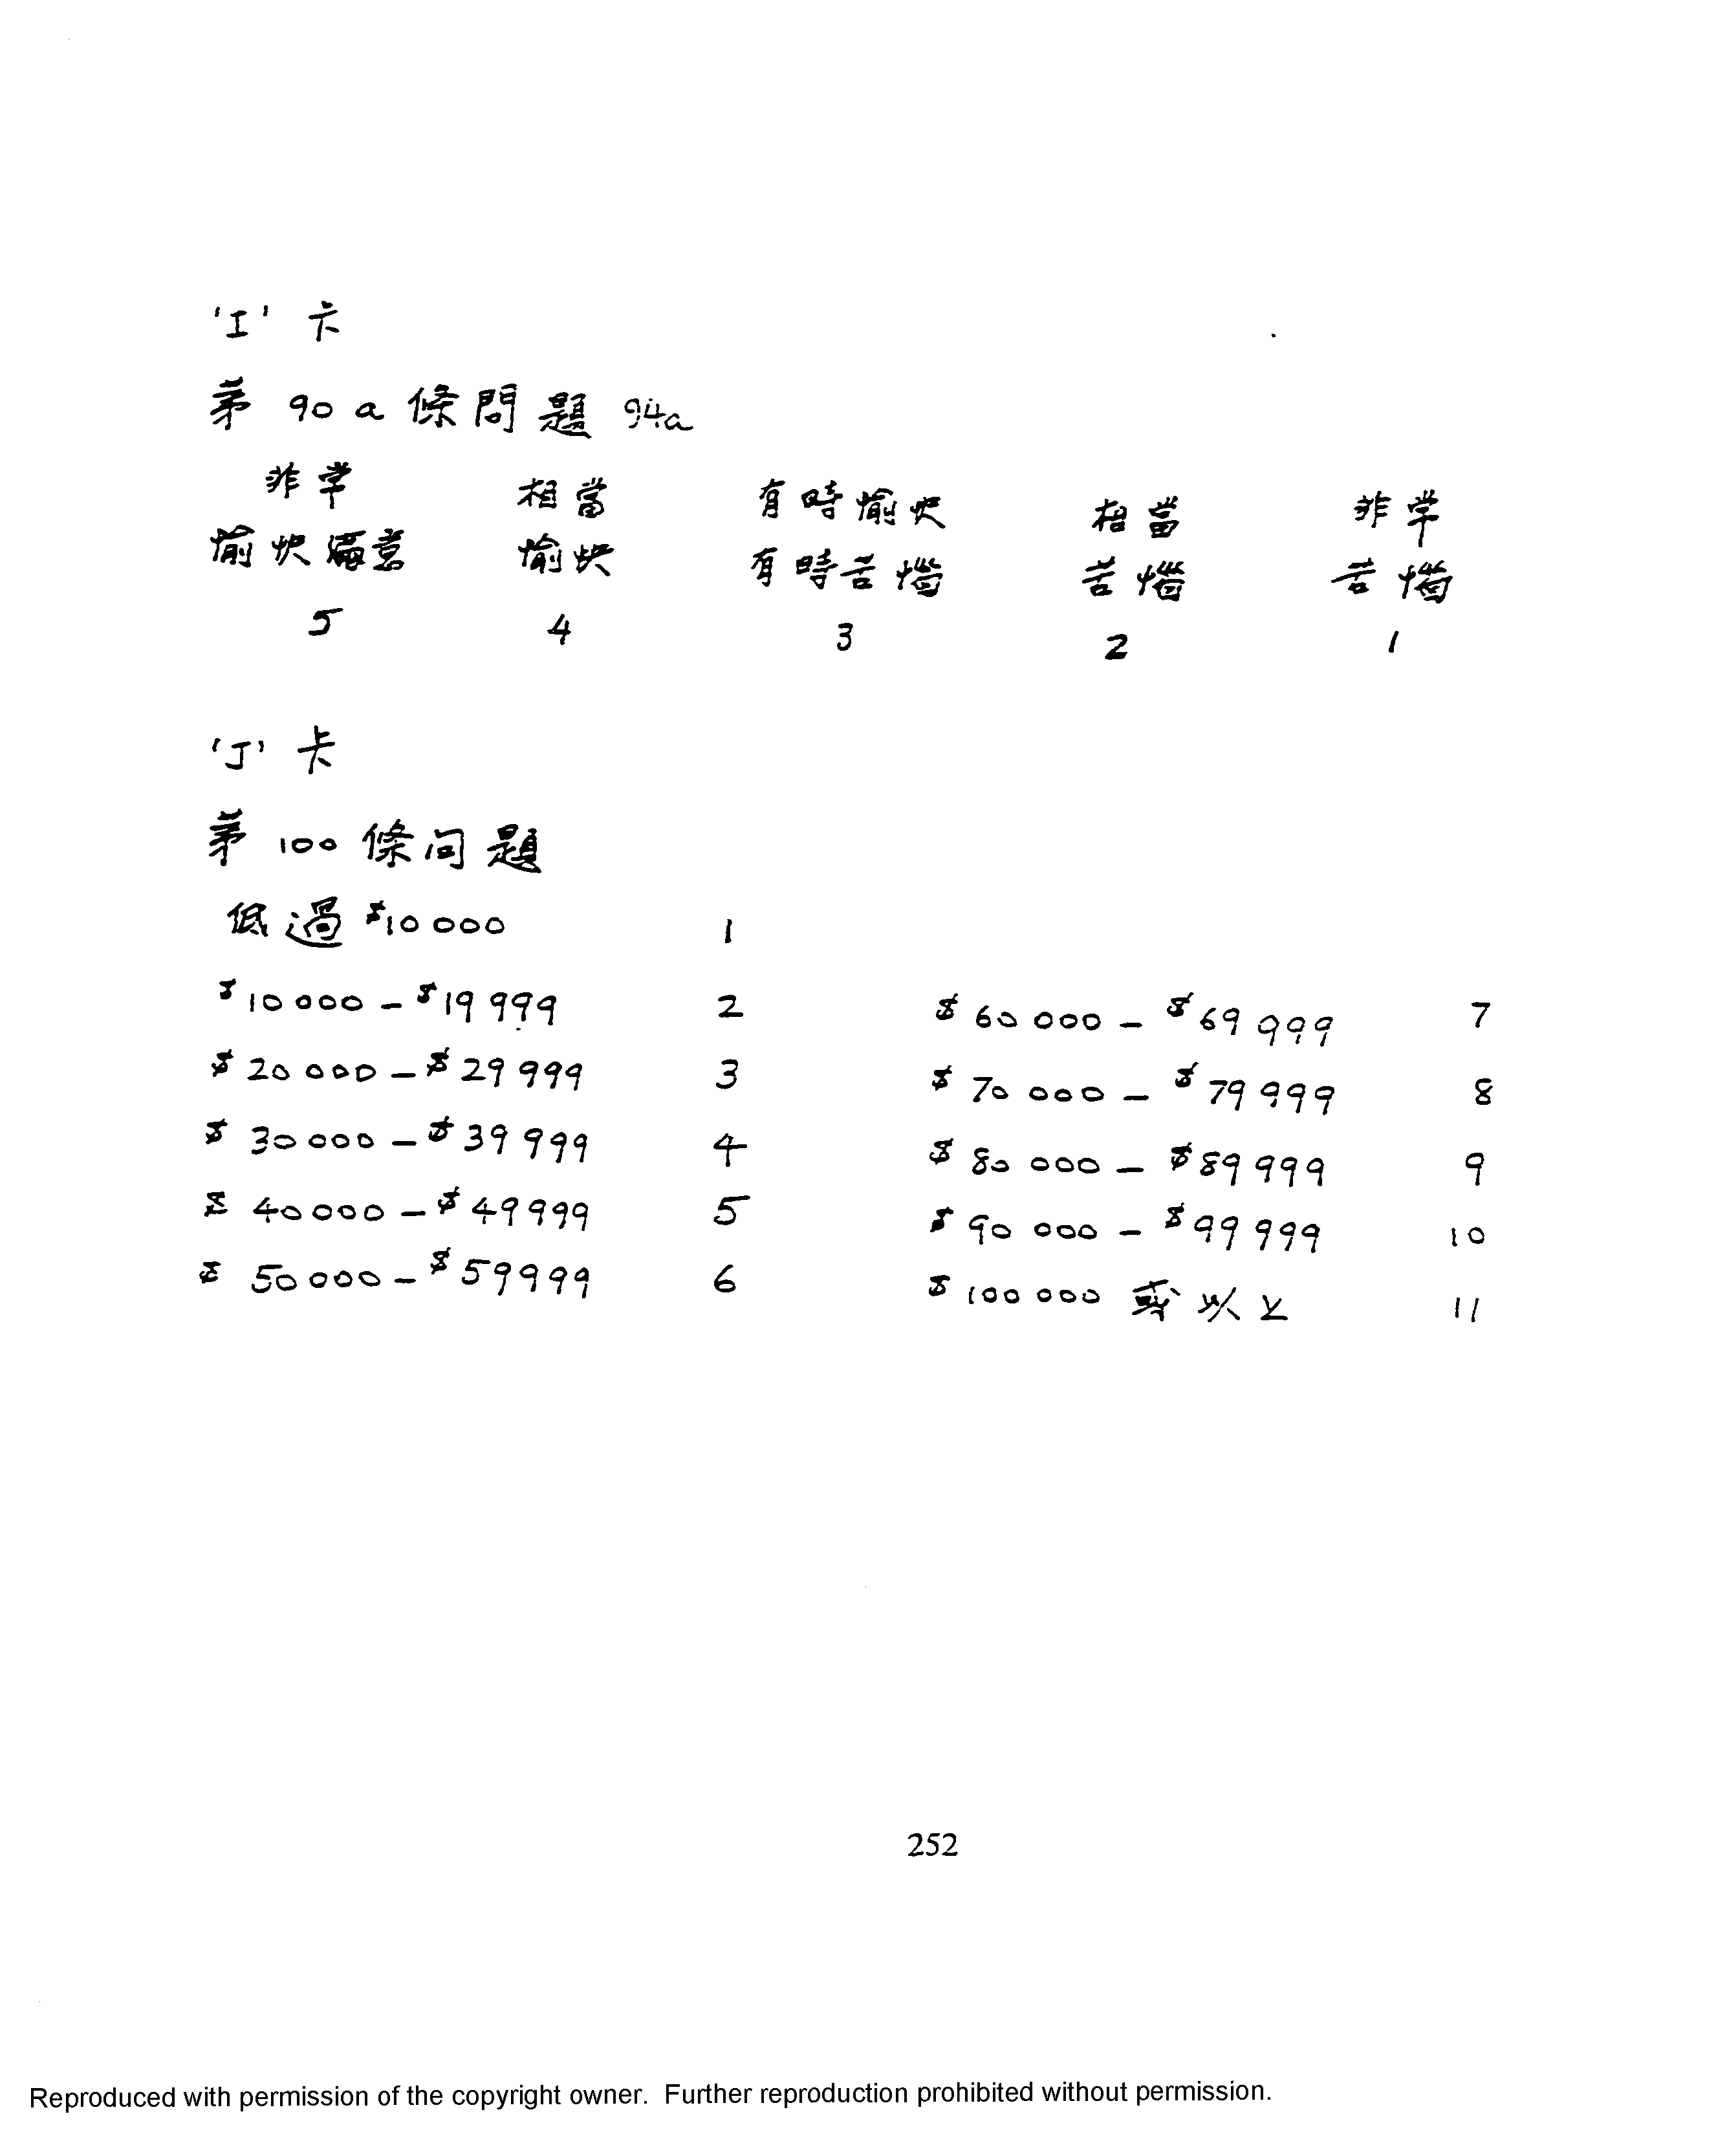 'I' 卡
第 90 a 條問題 94a
非常 相當 有時愉快 相當 非常
愉快滿意 愉快 有時苦惱 苦惱 苦惱
5 4 3 2 1
'J' 卡
第 100 條问題
低過 $10 000 1
$10 000 - $19 999 2 $ 60 000 - $69 999 7
$ 20 000 - $ 29 999 3 $ 70 000 - $79 999 8
$ 30 000 - $ 39 999 4 $ 80 000 - $89 999 9
$ 40 000 - $ 49 999 5 $ 90 000 - $99 999 10
$ 50 000 - $ 59 999 6 $ 100 000 或以上 11
252
Reproduced with permission of the copyright owner. Further reproduction prohibited without permission.